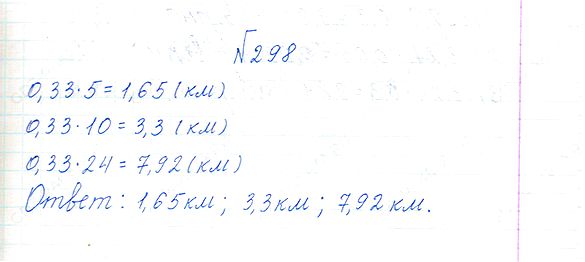 №298
0,33·5=1,65(км)
0,33·10=3,3 (км)
0,33·24=7,92(км)
Ответ: 1,65км; 3,3км; 7,92 км.